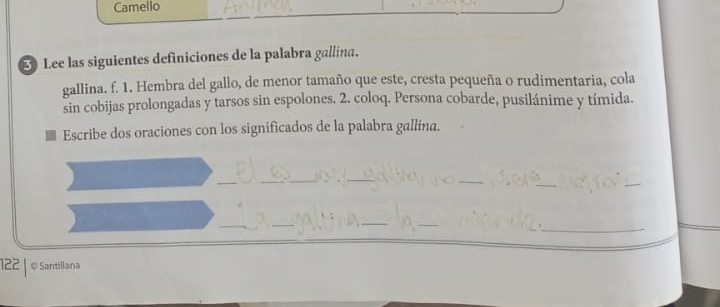 Camello
3 Lee las siguientes definiciones de la palabra gallina.
gallina. f. 1. Hembra del gallo, de menor tamaño que este, cresta pequeña o rudimentaria, cola
sin cobijas prolongadas y tarsos sin espolones. 2. coloq. Persona cobarde, pusilánime y tímida.
Escribe dos oraciones con los significados de la palabra gallina.
El es muy gallina, no
La gallina la
122 | © Santillana